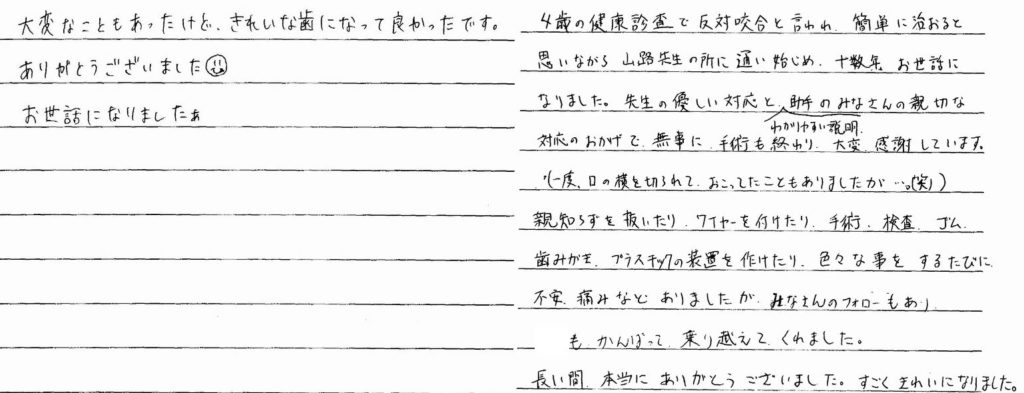 大変なこともあったけど、きれいな歯になって良かったです。
ありがとうございました
お世話になりましたぁ
4歳の健康診査で反対咬合と言われ、簡単に治おると
思いながら 山路先生の所に通い始じめ、十数年 お世話に
なりました。先生の優しい対応と、助手のみなさんの親切な
わかりやすい説明、
対応のおかげで、無事に、手術も終わり、大変、感謝しています。
(一度、口の横を切られて、おこってたこともありましたが…。(笑))
親知らずを抜いたり、ワイヤーを付けたり、手術、検査、ゴム、
歯みがき、プラスチックの装置を作けたり、色々な事を するたびに、
不安、痛みなど ありましたが、みなさんのフォローもあり、
も、がんばって、乗り越えて、くれました。
長い間、本当に ありがとう ございました。すごく きれいになりました。